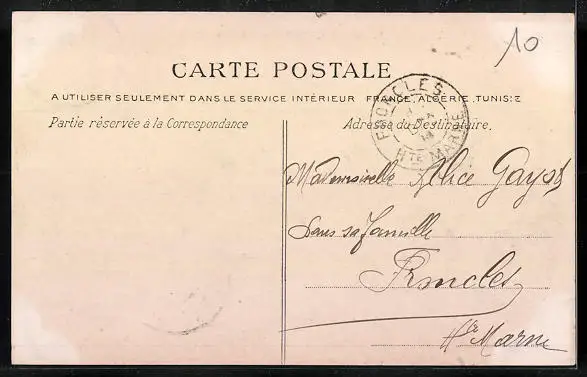 10
CARTE POSTALE
A UTILISER SEULEMENT DANS LE SERVICE INTÉRIEUR FRANCE, ALGÉRIE, TUNISIE
Partie réservée à la Correspondance
Adresse du Destinataire.
FRONCLES
HTE MARNE
Mademoiselle Alice Gayot
Dans sa famille
Froncles
Hte Marne